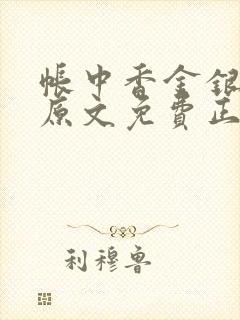 帳中香金銀
原文免費正
利穆魯